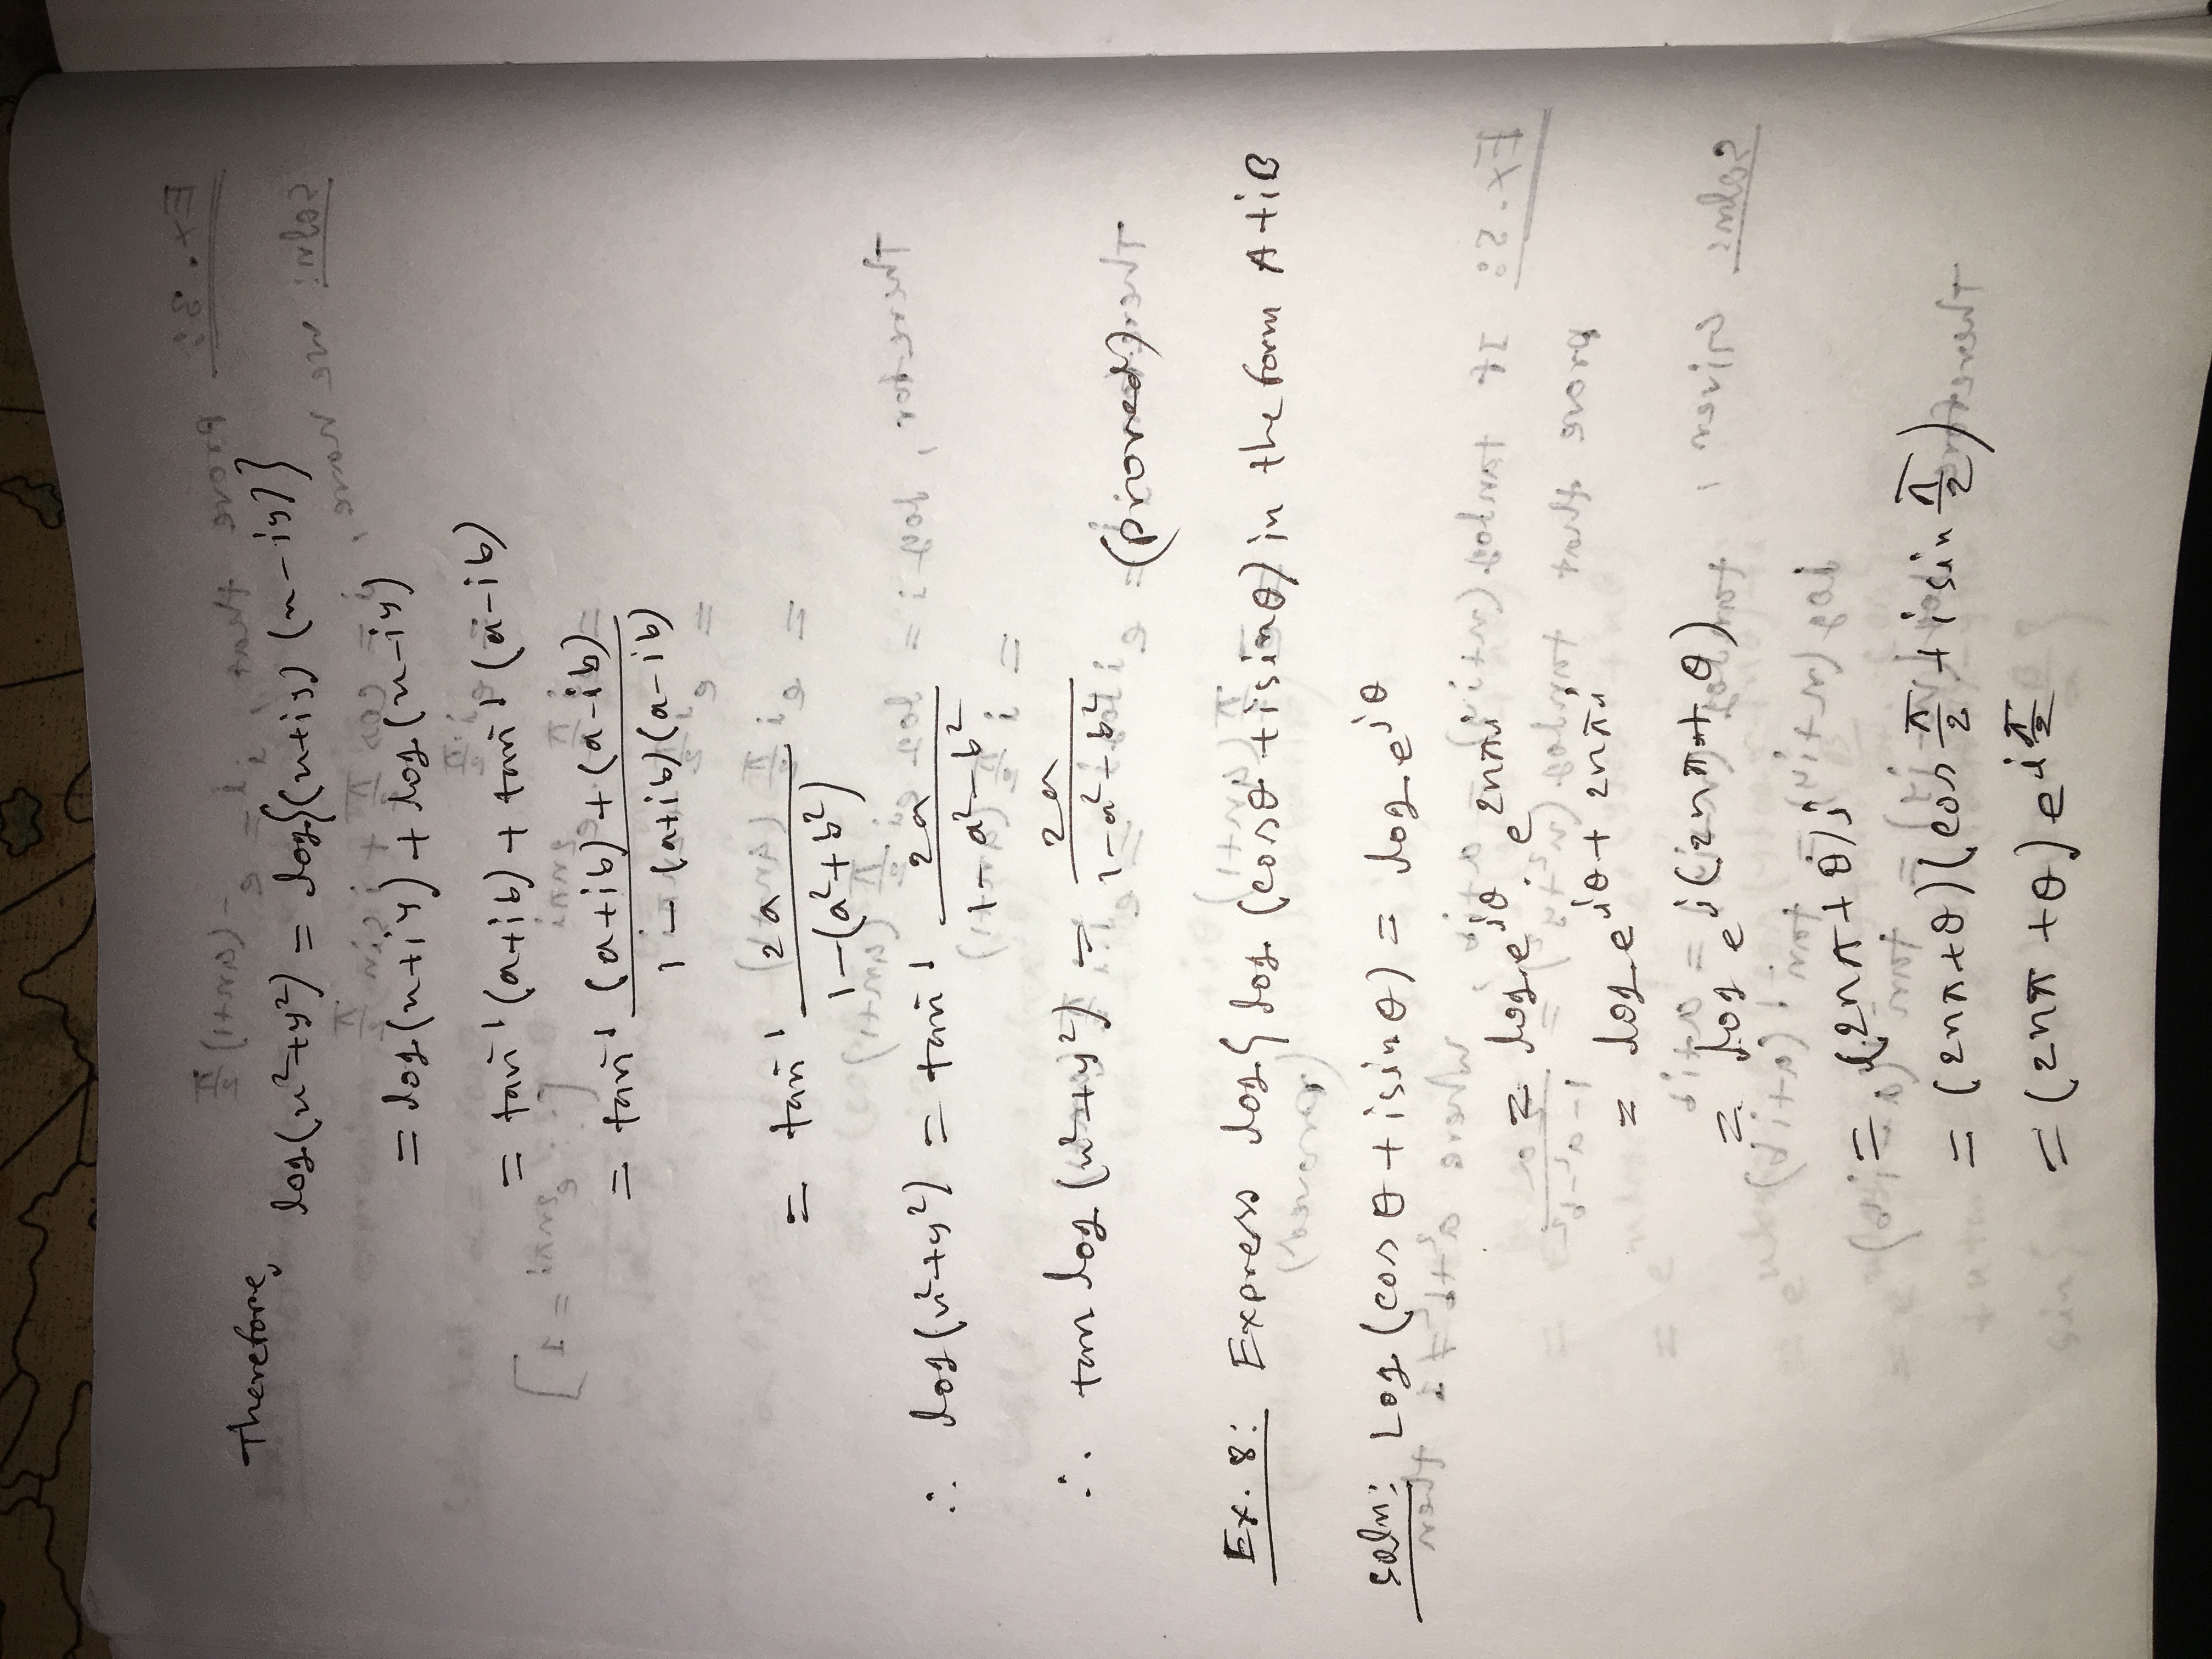 Therefore,
log(x²+y²) = log{(x+iy) (x-iy)}
= log(x+iy) + log(x-iy)
= tan⁻¹(a+ib) + tan⁻¹(a-ib)
= tan⁻¹ (a+ib)+(a-ib) / 1-(a+ib)(a-ib)
= tan⁻¹ 2a / 1-(a²+b²)
∴ log(x²+y²) = tan⁻¹ 2a / 1-a²-b²
∴ tan log(x²+y²) = 2a / 1-a²-b² (proved)
Ex. 8: Express log{ log (cosθ + isinθ) in the form A+iB
soln: Log (cos θ + isinθ) = log e^{iθ}
= log e^{iθ} . e^{2nπi}
= log e^{iθ + 2nπi}
= log e^{i(2nπ + θ)}
= (2nπ + θ)i
= (2nπ+θ)(cos π/2 + i sin π/2)
= (2nπ + θ) e^{i π/2}